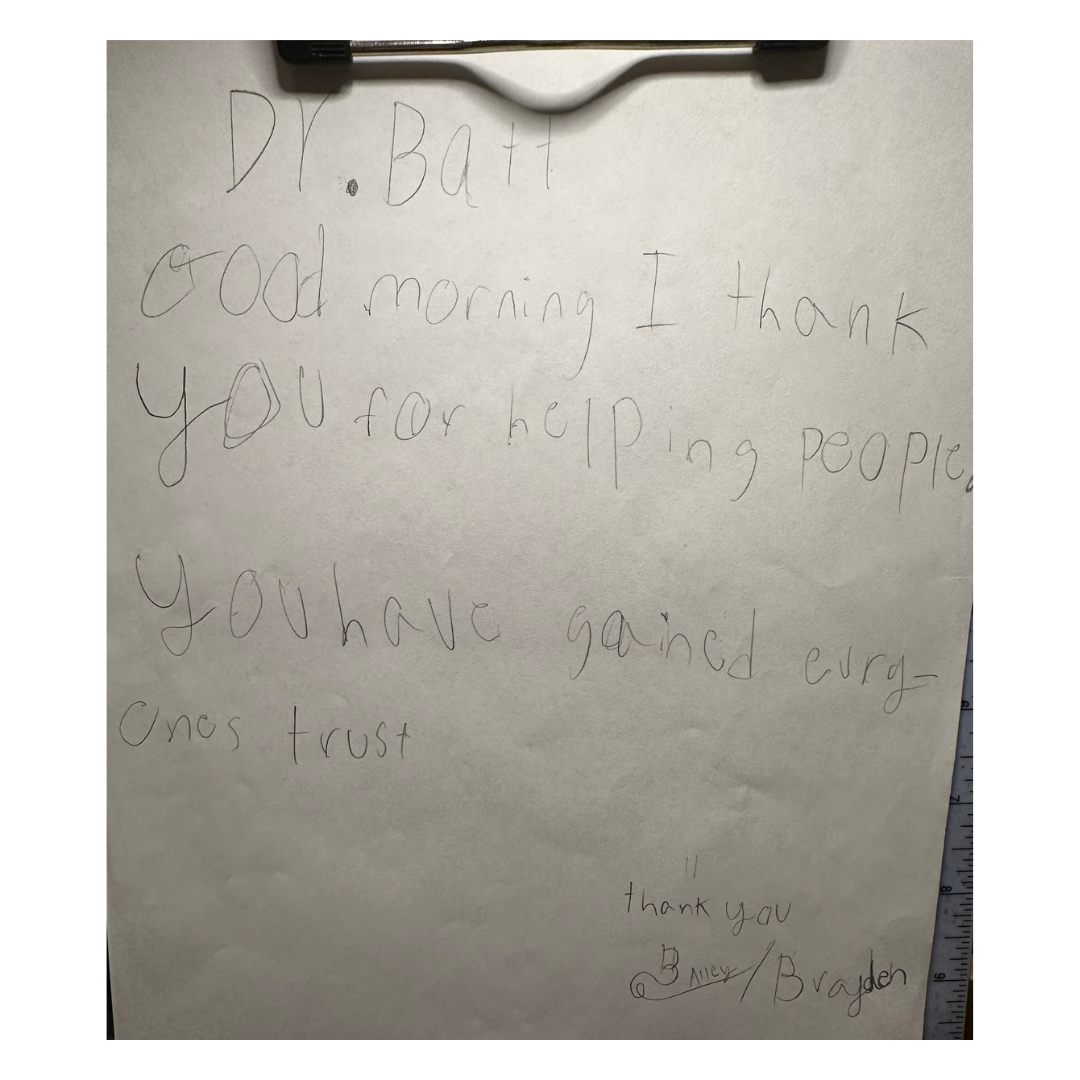 Dr. Batt
Good morning I thank
you for helping people.
you have gained evry-
ones trust
thank you
Bailey/Brayden